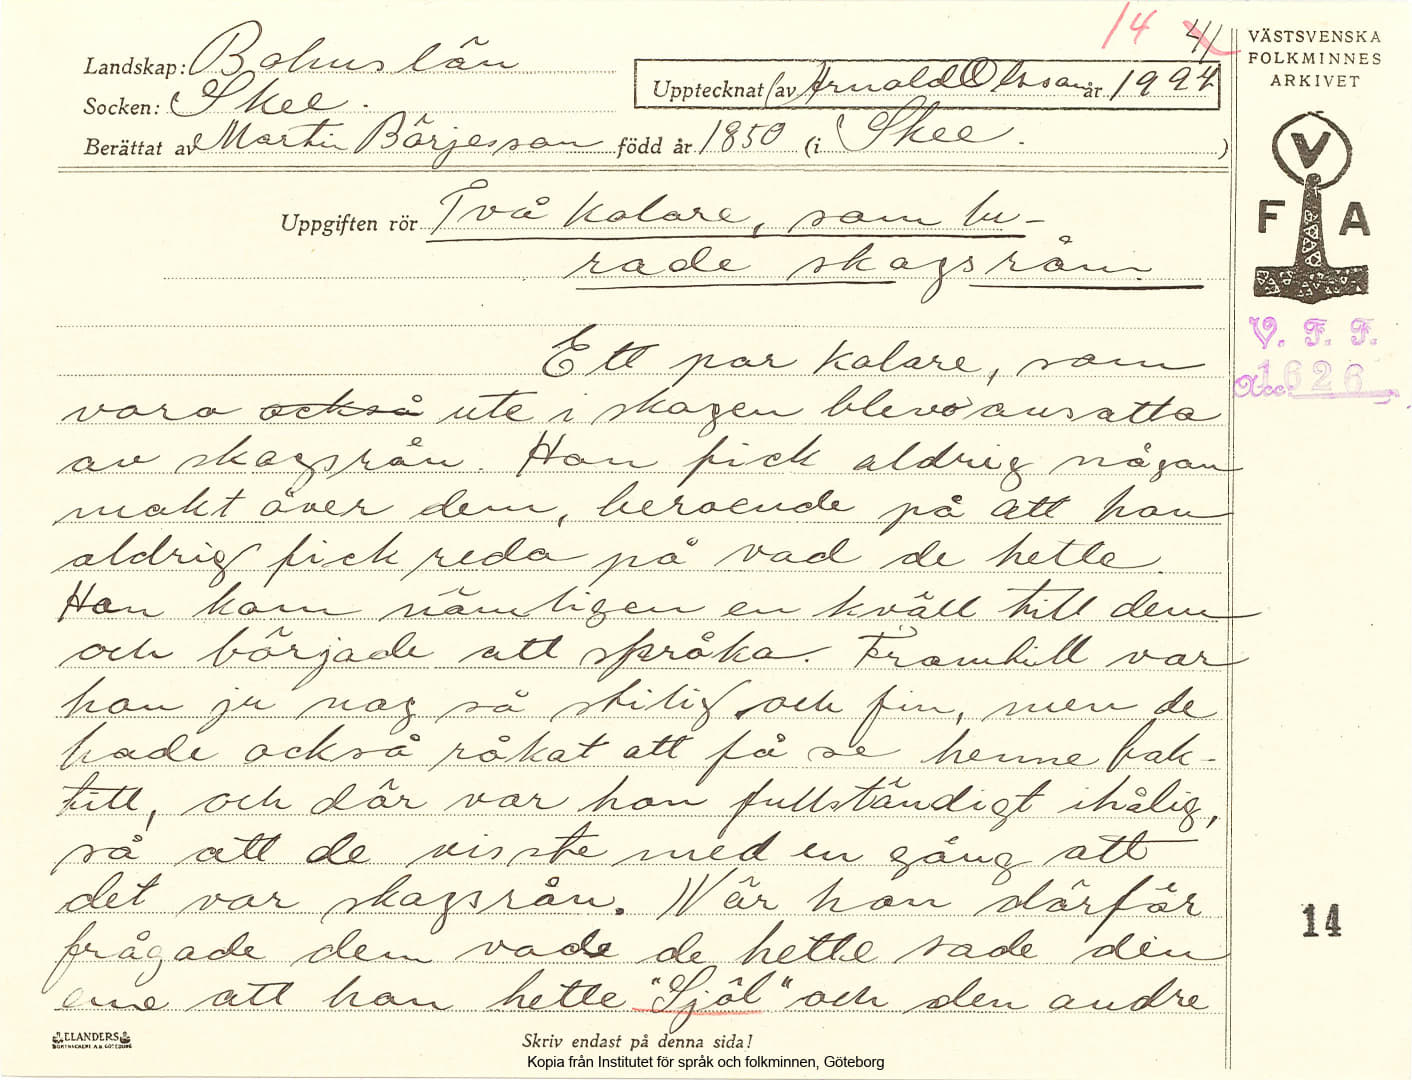 14 41
Landskap: Bohuslän
Socken: Skee.
Upptecknat av Arnold Olsson år 1924
Berättat av Martin Börjesson född år 1850 (i Skee. )
Uppgiften rör Två kolare, som lu-
rade skogsrån
Ett par kolare, som
voro också ute i skogen blevo ansatta
av skogsrån. Hon fick aldrig någon
makt över dem, beroende på att hon
aldrig fick reda på vad de hette.
Hon kom nämligen en kväll till dem
och började att språka. Framtill var
hon ju nog så stilig och fin, men de
hade också råkat att få se henne bak-
till, och där var hon fullständigt ihålig,
så att de visste med en gång att
det var skogsrån. När hon därför
frågade dem vad de hette sade den
ene att han hette "Sjöl" och den andre
ELANDERS
BOKTRYCKERI A.B. GÖTEBORG
Skriv endast på denna sida!
Kopia från Institutet för språk och folkminnen, Göteborg
VÄSTSVENSKA
FOLKMINNES
ARKIVET
V
F A
V. F. F.
Acc. 1626
14